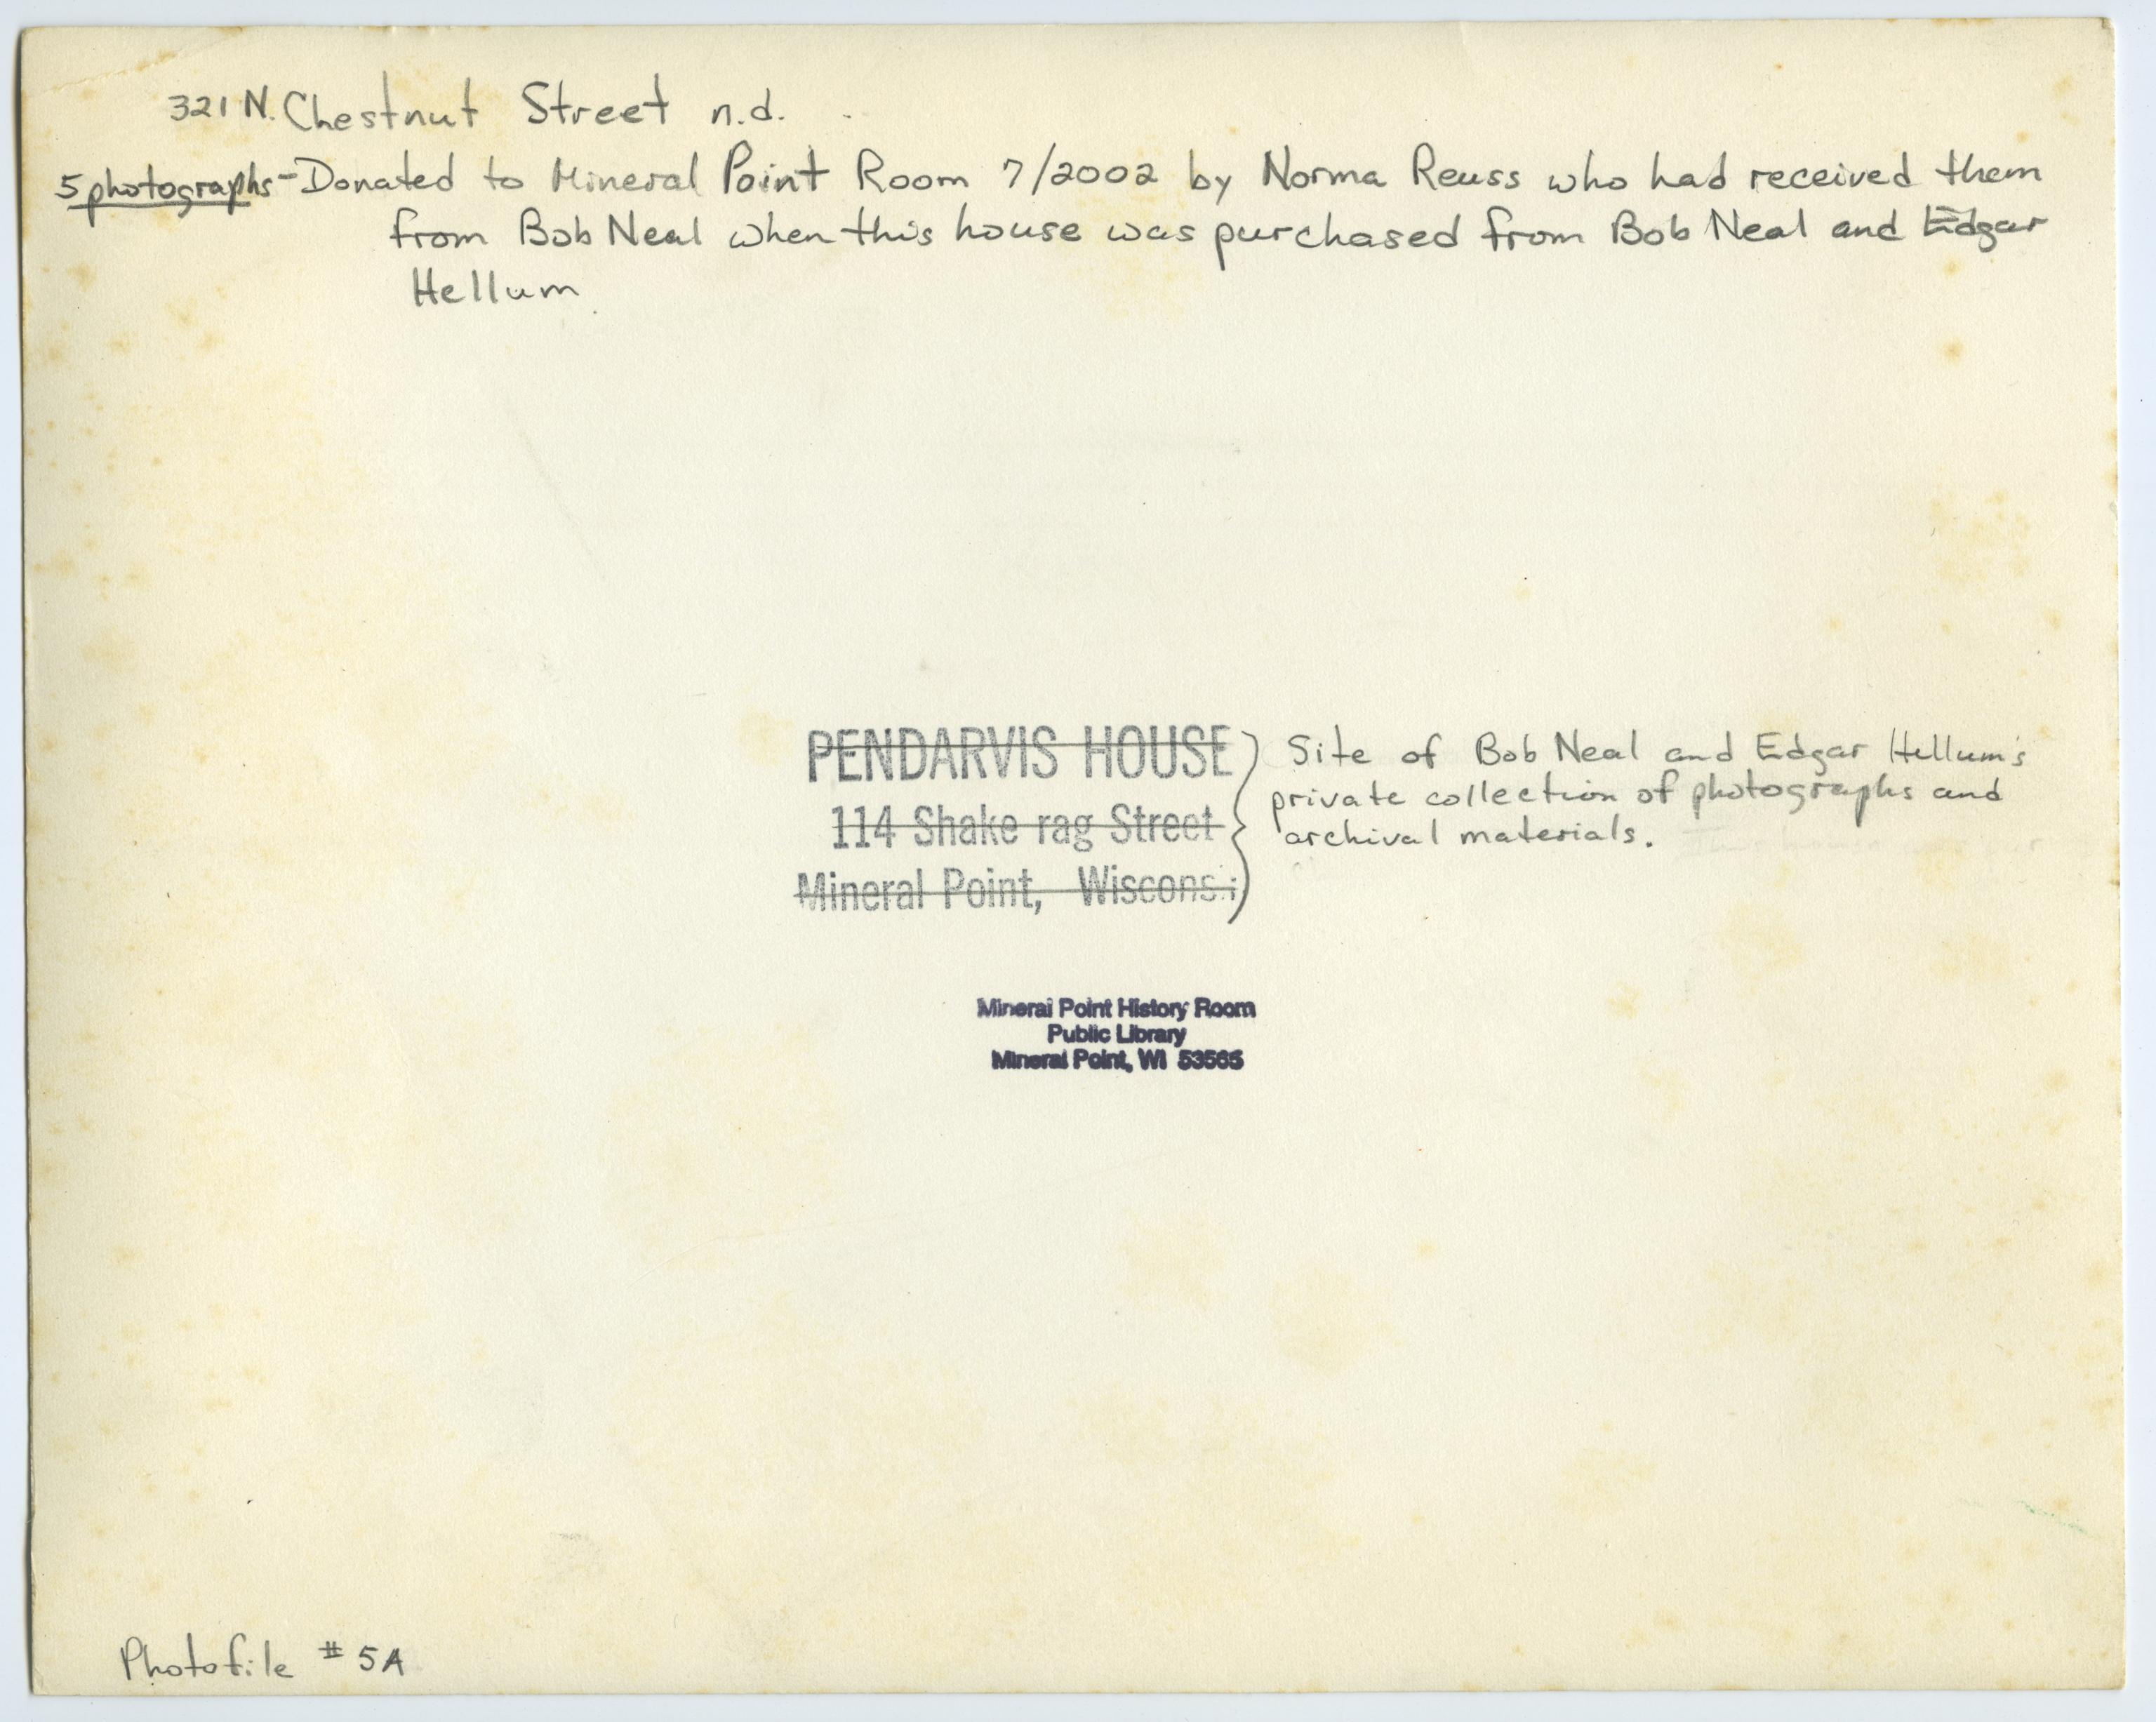 321 N. Chestnut Street n.d.
5 photographs - Donated to Mineral Point Room 7/2002 by Norma Reuss who had received them
from Bob Neal when this house was purchased from Bob Neal and Edgar
Hellum.
PENDARVIS HOUSE
114 Shake rag Street
Mineral Point, Wisconsi
Site of Bob Neal and Edgar Hellum's
private collection of photographs and
archival materials.
Mineral Point History Room
Public Library
Mineral Point, WI 53565
Photofile # 5A